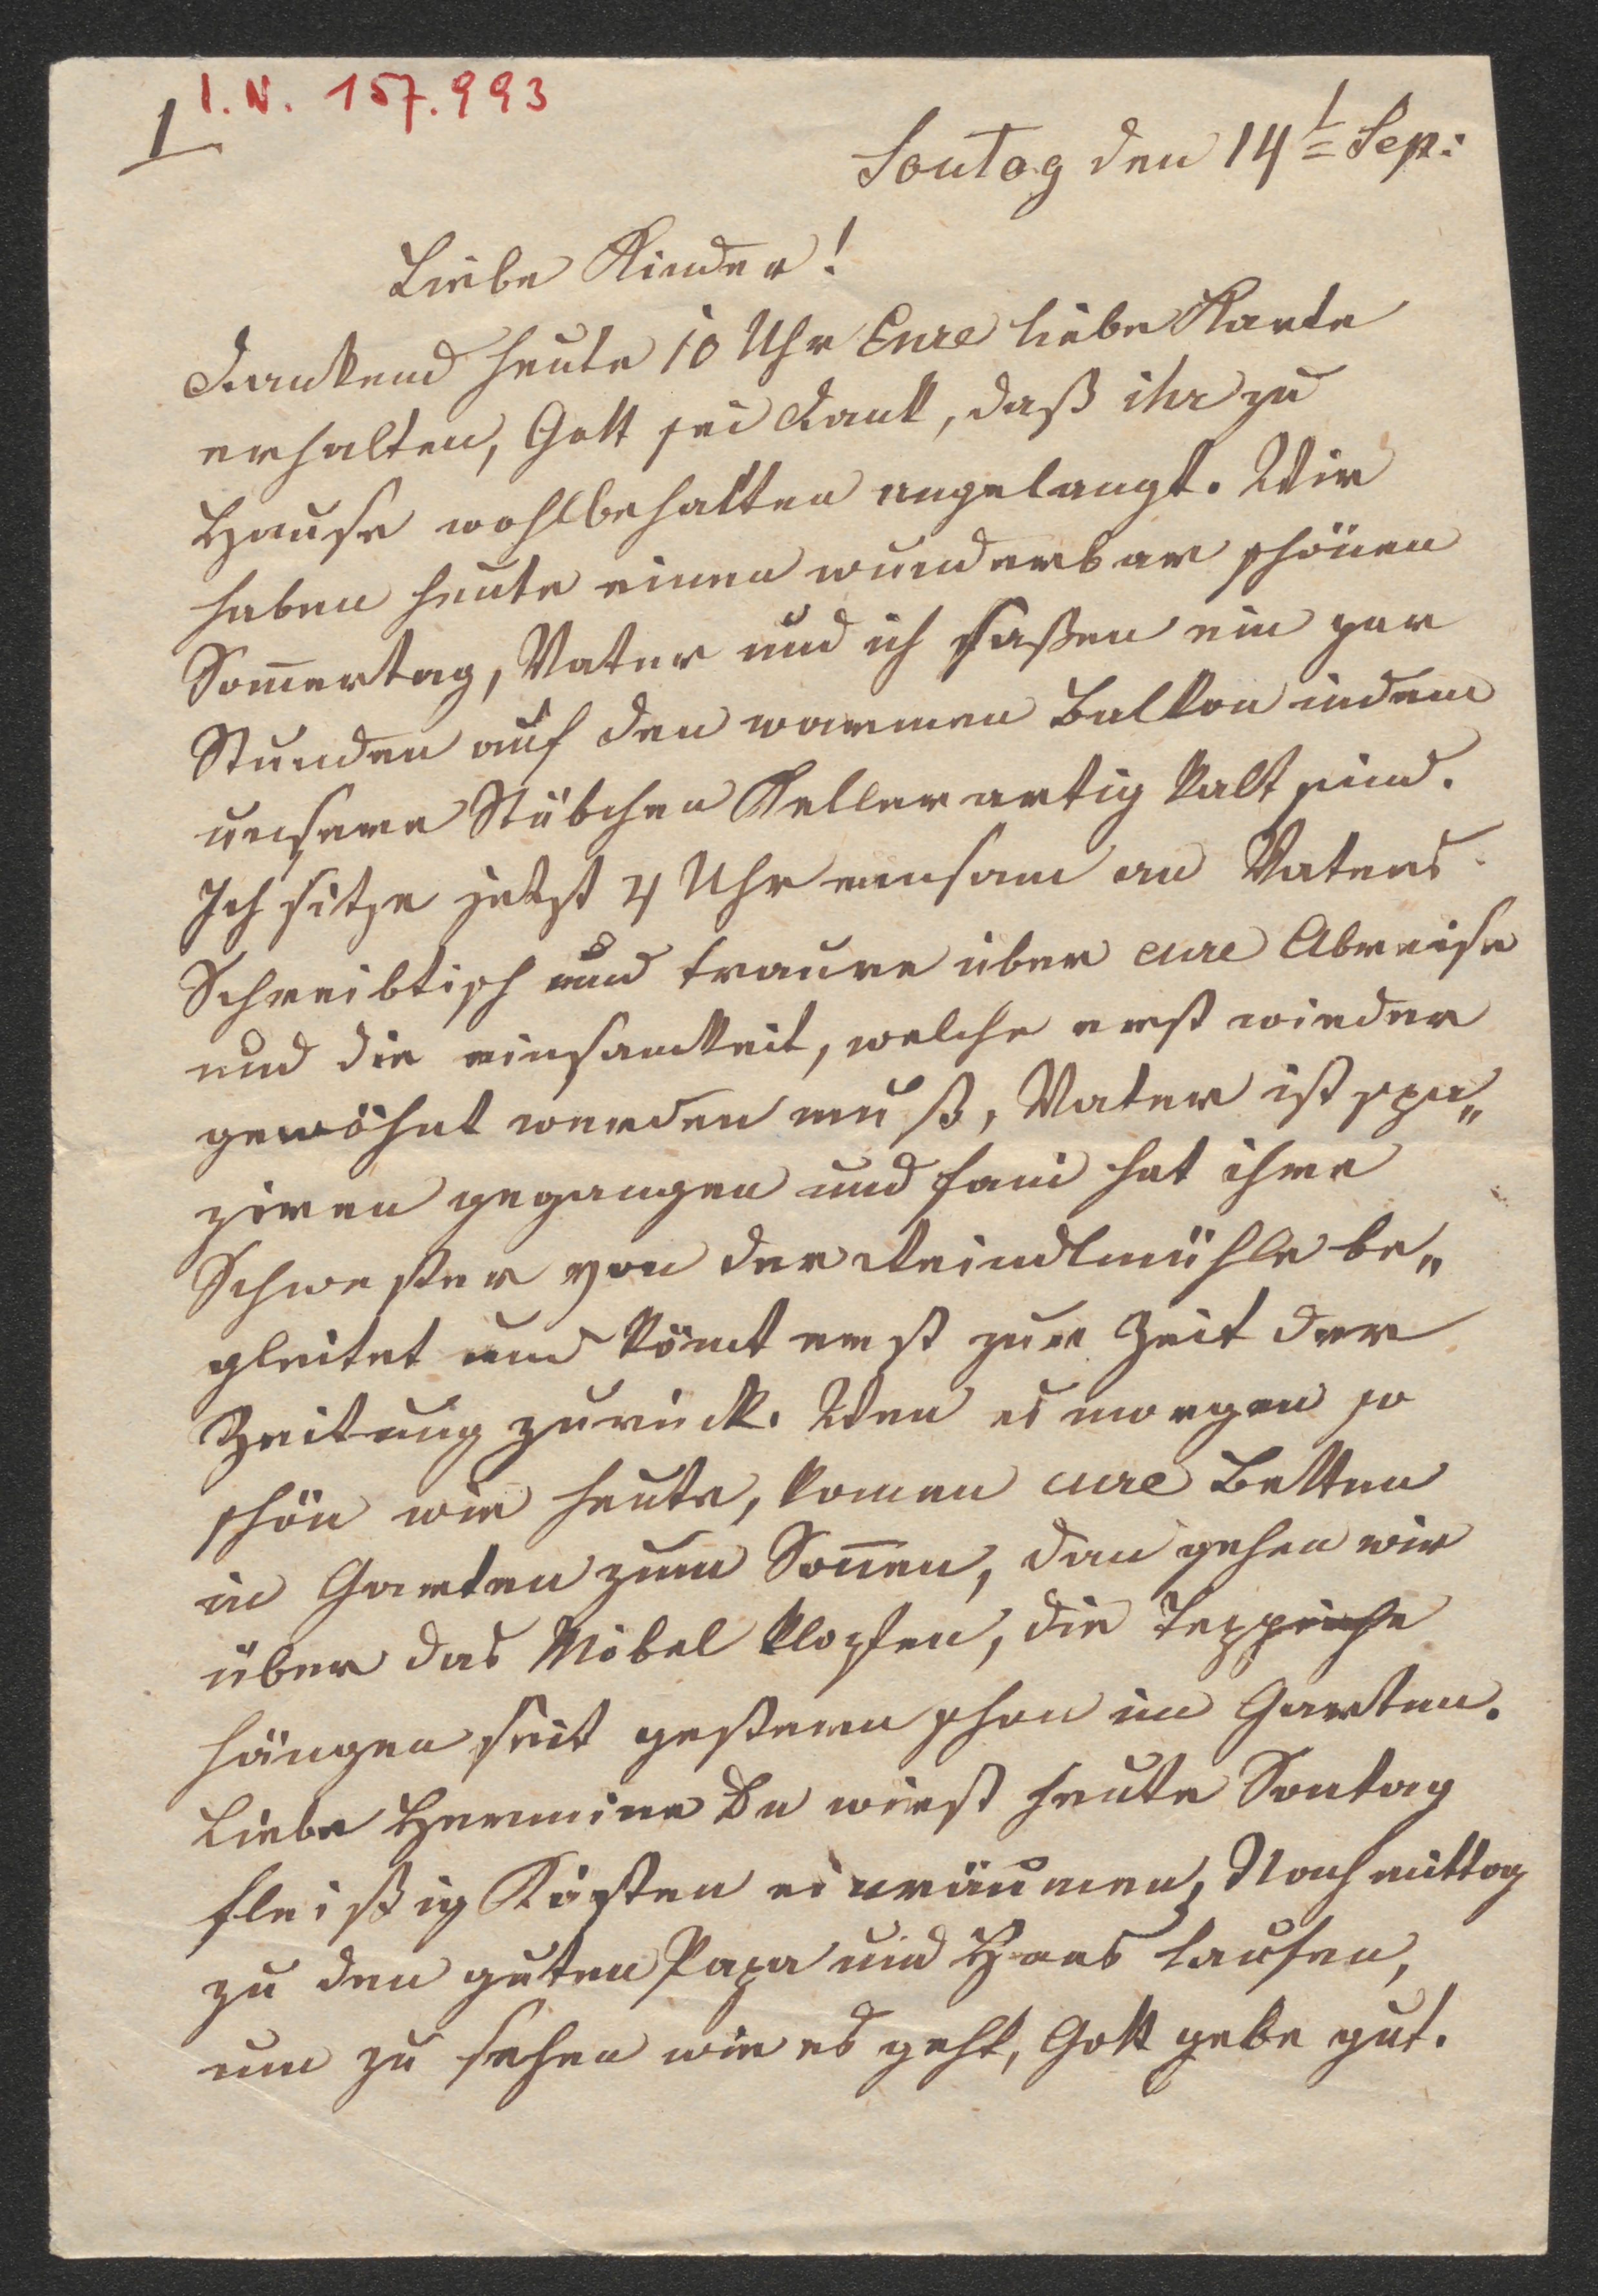 I.N. 157.993
1
Sontag den 14t Sep:
Liebe Kinder!
Dankend heute 10 Uhr Eure liebe Karte
erhalten, Gott sei Dank, daß ihr zu
Hause wohlbehalten angelangt. Wir
haben heute einen wunderbar schönen
Som̄ertag, Vater und ich saßen ein par
Stunden auf den warmen Balkon indem
unsere Stübchen Kellerartig kalt sind.
Ich sitze jetzt 4 Uhr einsam an Vaters
Schreibtisch und traure über eure Abreise
und die einsamkeit, welche erst wieder
gewöhnt werden muß, Vater ist spa„
ziren gegangen und Fani hat ihre
Schwester von der Reindlmühle be„
gleitet und kömt erst zur Zeit der
Zeitung zurück. Wen es morgen so
schön wie heute, komen eure Betten
in Garten zum Son̄en, dan gehen wir
über das Möbel klopfen, die Teppiche
hängen seit gestern schon im Garten.
Liebe Hermine Du wirst heute Sontag
fleißig Kästen einräumen, Nachmittag
zu den guten Papa und Hans laufen,
um zu sehen wie es geht, Gott gebe gut.